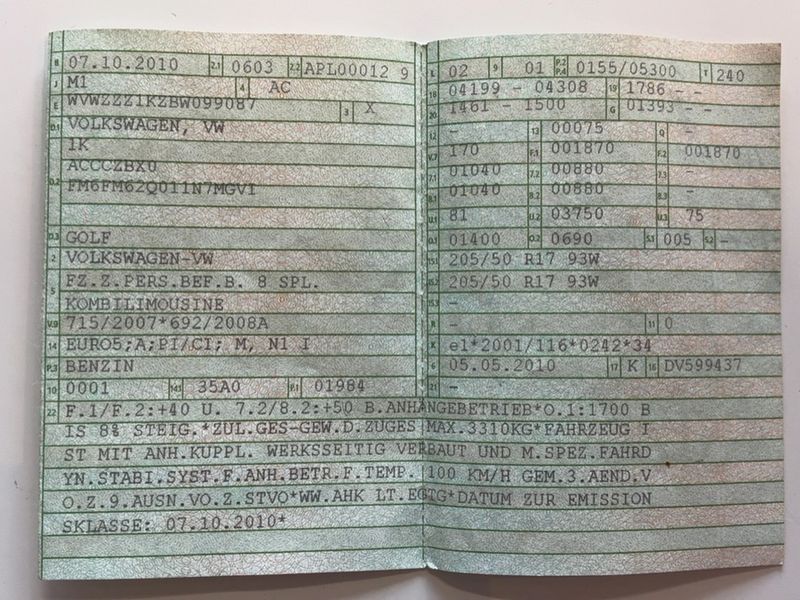 B 07.10.2010 2.1 0603 2.2 APL00012 9
J M1 4 AC
E WVWZZZ1KZBW099087 3 X
D.1 VOLKSWAGEN, VW
1K
D.2 ACCCZBX0
FM6FM62Q011N7MGV1
D.3 GOLF
2 VOLKSWAGEN-VW
5 FZ.Z.PERS.BEF.B. 8 SPL.
KOMBILIMOUSINE
V.9 715/2007*692/2008A
14 EURO5;A;PI/CI; M, N1 I
P.3 BENZIN
10 0001 14.1 35A0 P.1 01984
L 02 9 01 P.2 P.4 0155/05300 T 240
18 04199 - 04308 19 1786 - -
20 1461 - 1500 G 01393 - -
12 - 13 00075 Q -
V.7 170 F.1 001870 F.2 001870
7.1 01040 7.2 00880 7.3 -
8.1 01040 8.2 00880 8.3 -
U.1 81 U.2 03750 U.3 75
O.1 01400 O.2 0690 S.1 005 S.2 -
15.1 205/50 R17 93W
15.2 205/50 R17 93W
15.3 -
R - 11 0
K e1*2001/116*0242*34
6 05.05.2010 17 K 16 DV599437
21 -
22 F.1/F.2:+40 U. 7.2/8.2:+50 B.ANHÄNGEBETRIEB*O.1:1700 B
IS 8% STEIG.*ZUL.GES-GEW.D.ZUGES MAX.3310KG*FAHRZEUG I
ST MIT ANH.KUPPL. WERKSSEITIG VERBAUT UND M.SPEZ.FAHRD
YN.STABI.SYST.F.ANH.BETR.F.TEMP. 100 KM/H GEM.3.AEND.V
O.Z.9.AUSN.VO.Z.STVO*WW.AHK LT.EGTG*DATUM ZUR EMISSION
SKLASSE: 07.10.2010*